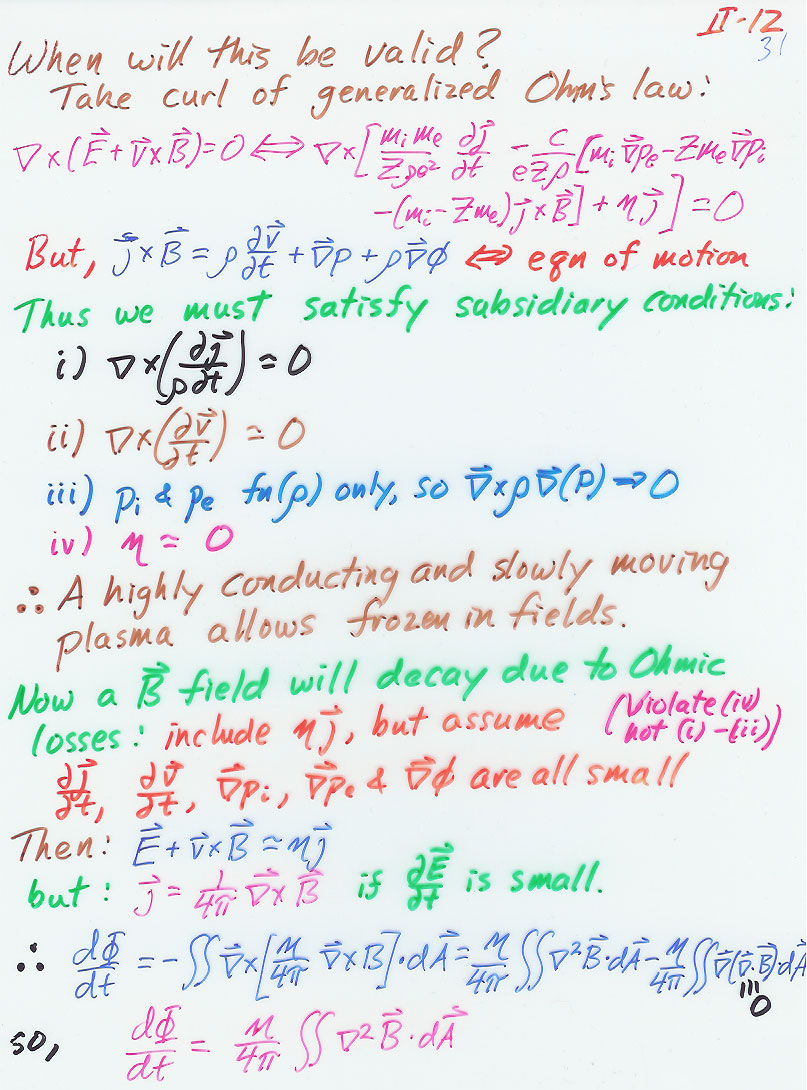 II-12
31
When will this be valid?
Take curl of generalized Ohm's law:
∇×(E⃗+v⃗×B⃗)=0 ⇔ ∇×[mᵢmₑ/Zρe² ∂j⃗/∂t - c/eZρ [mᵢ∇⃗pₑ-Zmₑ∇⃗pᵢ
-(mᵢ-Zmₑ)j⃗×B⃗]+ηj⃗]=0
But, j⃗×B⃗=ρ∂v⃗/∂t+∇⃗p+ρ∇⃗φ ⇔ eqn of motion
Thus we must satisfy subsidiary conditions:
i) ∇×(∂j⃗/ρ∂t) ≈ 0
ii) ∇×(∂v⃗/∂t) ≈ 0
iii) pᵢ & pₑ fn(ρ) only, so ∇⃗×ρ∇⃗(p) → 0
iv) η ≈ 0
∴ A highly conducting and slowly moving
plasma allows frozen in fields.
Now a B⃗ field will decay due to Ohmic
losses: include ηj⃗, but assume (Violate (iv)
not (i)-(iii))
∂j⃗/∂t, ∂v⃗/∂t, ∇⃗pᵢ, ∇⃗pₑ & ∇⃗φ are all small
Then: E⃗+v⃗×B⃗≈ηj⃗
but: j⃗=1/4π ∇⃗×B⃗ if ∂E⃗/∂t is small.
∴ dΦ/dt = -∬∇⃗×[η/4π ∇⃗×B]·dA⃗=η/4π ∬∇²B⃗·dA⃗-η/4π ∬∇⃗(∇⃗·B⃗)·dA
≡0
so, dΦ/dt = η/4π ∬∇²B⃗·dA⃗